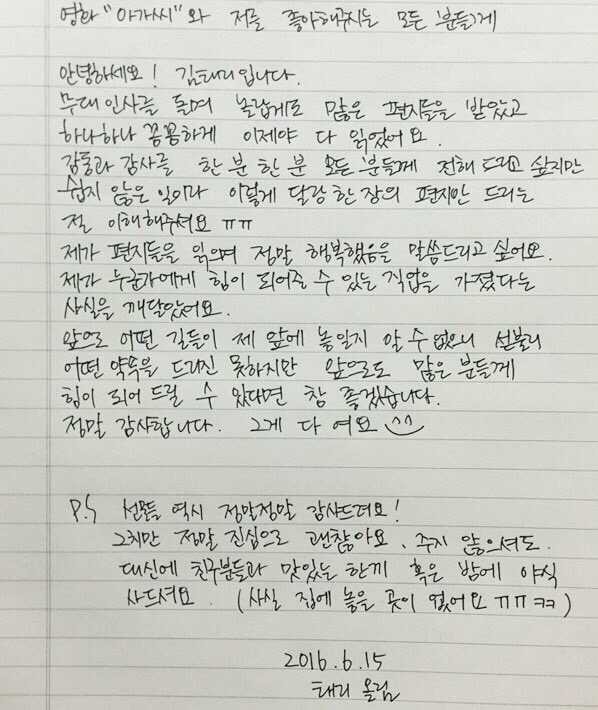 영화 "아가씨"와 저를 좋아해주시는 모든 분들께
안녕하세요! 김태리입니다.
무대인사를 돌며 놀랍게도 많은 편지들을 받았고
하나하나 꼼꼼하게 이제야 다 읽었어요.
감동과 감사를 한 분 한 분 모든 분들께 전해 드리고 싶지만
쉽지 않은 일이라 이렇게 달랑 한 장의 편지만 드리는
절 이해해주셔요 ㅠㅠ
제가 편지들을 읽으며 정말 행복했음을 말씀드리고 싶어요.
제가 누군가에게 힘이 되어줄 수 있는 직업을 가졌다는
사실을 깨달았어요.
앞으로 어떤 길들이 제 앞에 놓일지 알 수 없으니 섣불리
어떤 약속을 드리진 못하지만 앞으로도 많은 분들께
힘이 되어 드릴 수 있다면 참 좋겠습니다.
정말 감사합니다. 그게 다 여요 ^^
P.S 선물들 역시 정말정말 감사드려요!
그치만 정말 진심으로 괜찮아요. 주지 않으셔도.
대신에 친구분들과 맛있는 한끼 혹은 밤에 야식
사드셔요. (사실 집에 놓을 곳이 없어요 ㅠㅠㅋㅋ)
2016.6.15
태리 올림